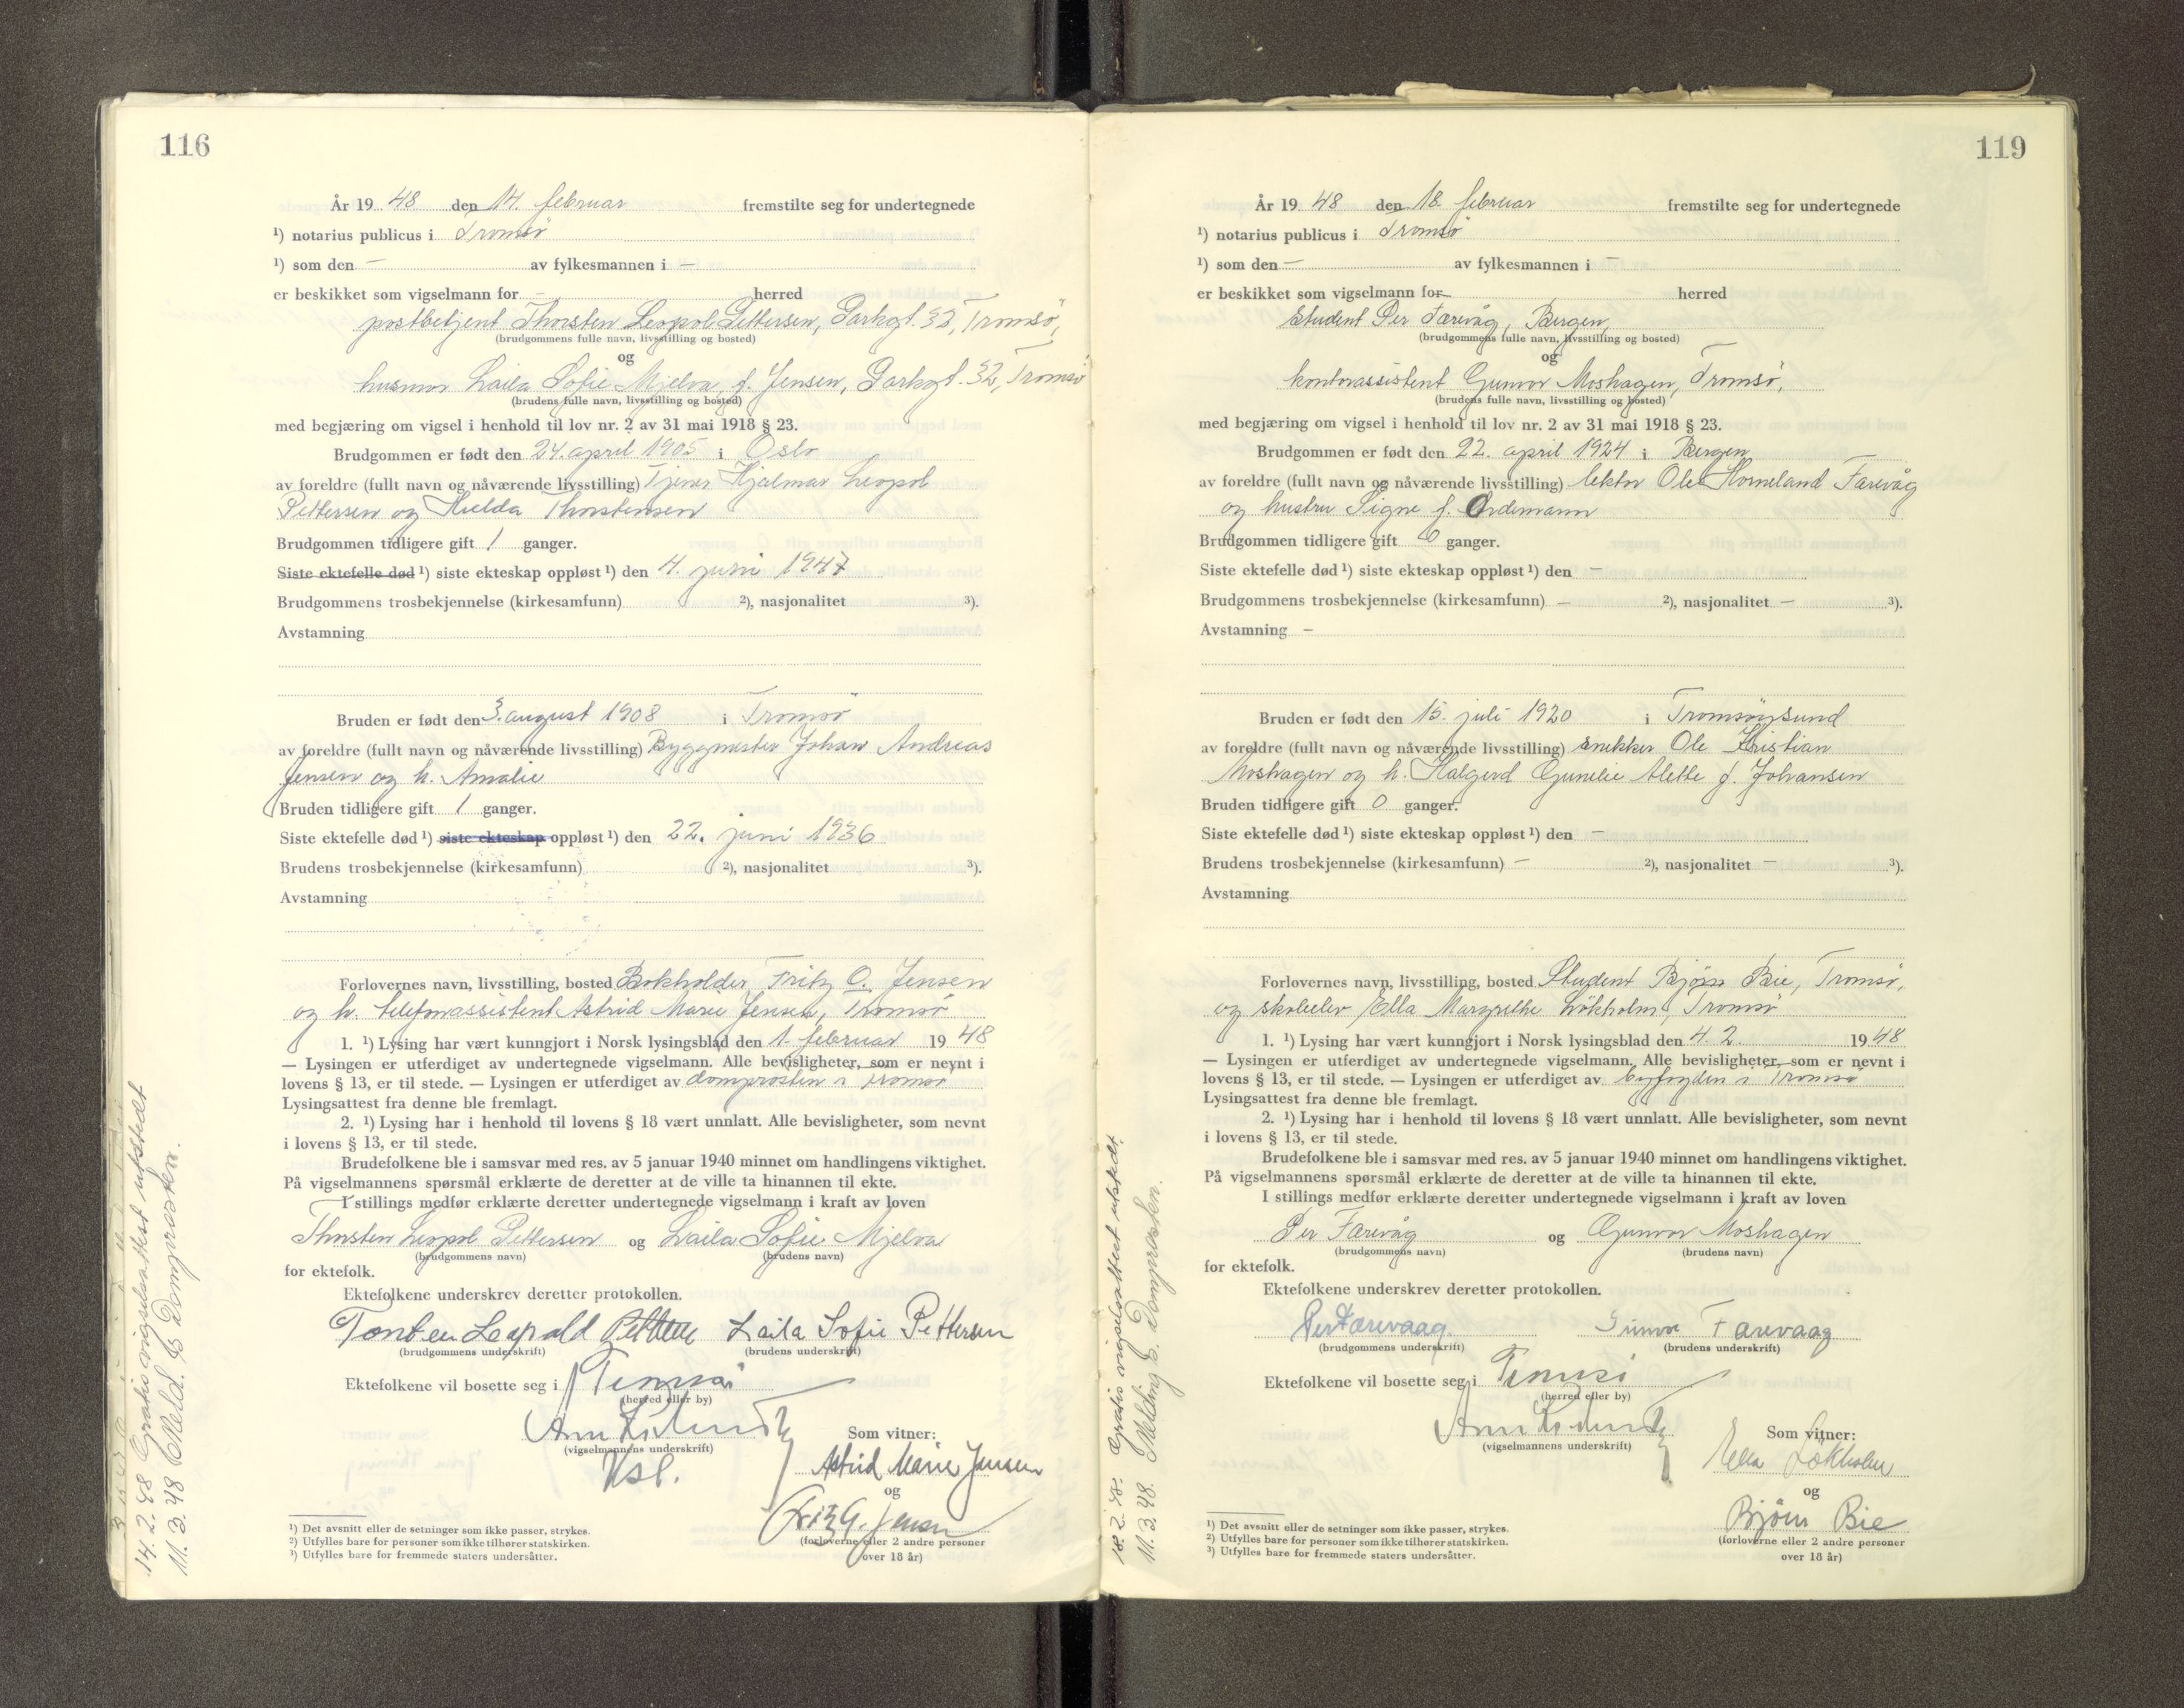 116
År 19 48 den 14. februar fremstilte seg for undertegnede
¹) notarius publicus i Tromsö
¹) som den — av fylkesmannen i —
er beskikket som vigselmann for — herred
postbetjent Thorsten Leopol Pettersen, Parkgt. 32, Tromsö,
(brudgommens fulle navn, livsstilling og bosted)
og
husmor Laila Sofie Mjelva f. Jensen, Parkgt. 32, Tromsö
(brudens fulle navn, livsstilling og bosted)
med begjæring om vigsel i henhold til lov nr. 2 av 31 mai 1918 § 23.
Brudgommen er født den 24. april 1905 i Oslo
av foreldre (fullt navn og nåværende livsstilling) Tjener Hjalmar Leopol
Pettersen og Hulda Thorstensen
Brudgommen tidligere gift 1 ganger.
Siste ektefelle død ¹) siste ekteskap oppløst ¹) den 4. juni 1947
Brudgommens trosbekjennelse (kirkesamfunn) ²), nasjonalitet ³).
Avstamning
Bruden er født den 3. august 1908 i Tromsö
av foreldre (fullt navn og nåværende livsstilling) Byggmester Johan Andreas
Jensen og h. Amalie
Bruden tidligere gift 1 ganger.
Siste ektefelle død ¹) siste ekteskap oppløst ¹) den 22. juni 1936
Brudens trosbekjennelse (kirkesamfunn) ²), nasjonalitet ³).
Avstamning
Forlovernes navn, livsstilling, bosted Bokholder Fritz O. Jensen
og h. telefonassistent Astrid Marie Jensen, Tromsö
1. ¹) Lysing har vært kunngjort i Norsk lysingsblad den 1. februar 19 48
— Lysingen er utferdiget av undertegnede vigselmann. Alle bevisligheter, som er nevnt i
lovens § 13, er til stede. — Lysingen er utferdiget av domprosten i Tromsö
Lysingsattest fra denne ble fremlagt.
2. ¹) Lysing har i henhold til lovens § 18 vært unnlatt. Alle bevisligheter, som nevnt
i lovens § 13, er til stede.
Brudefolkene ble i samsvar med res. av 5 januar 1940 minnet om handlingens viktighet.
På vigselmannens spørsmål erklærte de deretter at de ville ta hinannen til ekte.
I stillings medfør erklærte deretter undertegnede vigselmann i kraft av loven
Thorsten Leopol Pettersen og Laila Sofie Mjelva
(brudgommens navn) (brudens navn)
for ektefolk.
Ektefolkene underskrev deretter protokollen.
Leopold Laila Sofie Pettersen
(brudgommens underskrift) (brudens underskrift)
Ektefolkene vil bosette seg i Tromsö
(herred eller by)
(vigselmannens underskrift)
Som vitner:
Astrid Marie Jensen
og
Fritz O. Jensen
(forloverne eller 2 andre personer
over 18 år)
¹) Det avsnitt eller de setninger som ikke passer, strykes.
²) Utfylles bare for personer som ikke tilhører statskirken.
³) Utfylles bare for fremmede staters undersåtter.
14.2.48 Gratis vigselsattest utstedt
11.3.48 Meld. til Domprosten.
119
År 19 48 den 18. februar fremstilte seg for undertegnede
¹) notarius publicus i Tromsö
¹) som den — av fylkesmannen i —
er beskikket som vigselmann for — herred
Student Per Farevåg, Bergen,
(brudgommens fulle navn, livsstilling og bosted)
og
kontorassistent Gunvor Moshagen, Tromsö,
(brudens fulle navn, livsstilling og bosted)
med begjæring om vigsel i henhold til lov nr. 2 av 31 mai 1918 § 23.
Brudgommen er født den 22. april 1924 i Bergen
av foreldre (fullt navn og nåværende livsstilling) lektor Ole Horneland Farevåg
og hustru Signe f. Ordemann
Brudgommen tidligere gift 0 ganger.
Siste ektefelle død ¹) siste ekteskap oppløst ¹) den —
Brudgommens trosbekjennelse (kirkesamfunn) — ²), nasjonalitet — ³).
Avstamning —
Bruden er født den 15. juli 1920 i Tromsöysund
av foreldre (fullt navn og nåværende livsstilling) snekker Ole Kristian
Moshagen og h. Halgerd Gunelie Alette f. Johansen
Bruden tidligere gift 0 ganger.
Siste ektefelle død ¹) siste ekteskap oppløst ¹) den —
Brudens trosbekjennelse (kirkesamfunn) — ²), nasjonalitet — ³).
Avstamning
Forlovernes navn, livsstilling, bosted Student Bjørn Bie, Tromsö,
og skoleelev Ella Margrethe Lökholm, Tromsö
1. ¹) Lysing har vært kunngjort i Norsk lysingsblad den 4. 2. 19 48
— Lysingen er utferdiget av undertegnede vigselmann. Alle bevisligheter, som er nevnt i
lovens § 13, er til stede. — Lysingen er utferdiget av byfogden i Tromsö
Lysingsattest fra denne ble fremlagt.
2. ¹) Lysing har i henhold til lovens § 18 vært unnlatt. Alle bevisligheter, som nevnt
i lovens § 13, er til stede.
Brudefolkene ble i samsvar med res. av 5 januar 1940 minnet om handlingens viktighet.
På vigselmannens spørsmål erklærte de deretter at de ville ta hinannen til ekte.
I stillings medfør erklærte deretter undertegnede vigselmann i kraft av loven
Per Farevåg og Gunvor Moshagen
(brudgommens navn) (brudens navn)
for ektefolk.
Ektefolkene underskrev deretter protokollen.
Per Farevaag. Gunvor Farevaag
(brudgommens underskrift) (brudens underskrift)
Ektefolkene vil bosette seg i Tromsö
(herred eller by)
(vigselmannens underskrift)
Som vitner:
Ella Lökholm
og
Bjørn Bie
(forloverne eller 2 andre personer
over 18 år)
¹) Det avsnitt eller de setninger som ikke passer, strykes.
²) Utfylles bare for personer som ikke tilhører statskirken.
³) Utfylles bare for fremmede staters undersåtter.
18.2.48. Gratis vigselsattest utstedt.
11.3.48. Melding til Domprosten.